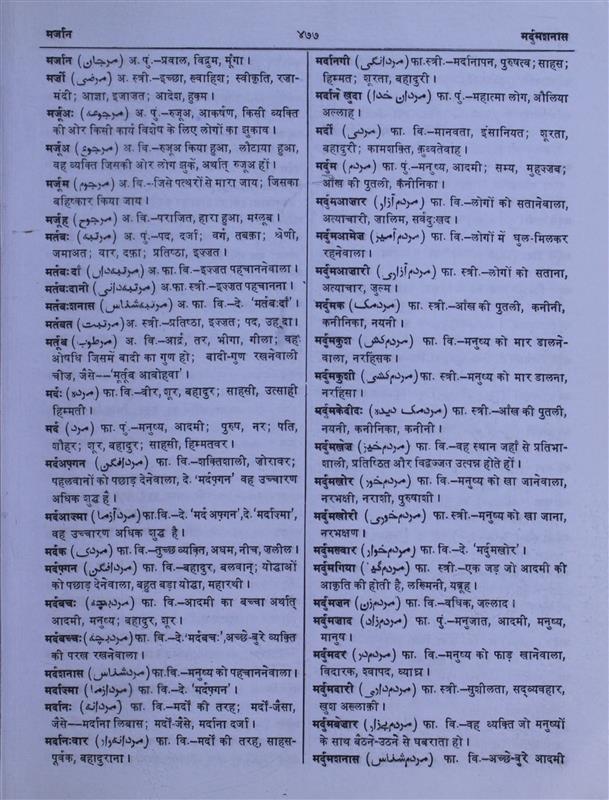 मर्जान
४७७
मर्दुमशनास
मर्जान (مرجان) अ. पुं.–प्रवाल, विद्रुम, मूँगा।
मर्जी (مرضی) अ. स्त्री.–इच्छा, ख्वाहिश; स्वीकृति, रज़ा-
मंदी; आज्ञा, इजाज़त; आदेश, हुक्म।
मर्जूअः (مرجوعہ) अ. पुं.–रुजूअ, आकर्षण, किसी व्यक्ति
की ओर किसी कार्य विशेष के लिए लोगों का झुकाव।
मर्जूअ (مرجوع) अ. वि.–रुजूअ किया हुआ, लौटाया हुआ,
वह व्यक्ति जिसकी ओर लोग झुकें, अर्थात् रुजूअ हों।
मर्जूम (مرجوم) अ. वि.–जिसे पत्थरों से मारा जाय; जिसका
बहिष्कार किया जाय।
मर्जूह (مرجوح) अ. वि.–पराजित, हारा हुआ, मग्लूब।
मर्तबः (مرتبہ) अ. पुं.–पद, दर्जा; वर्ग, तबक़ा; श्रेणी,
जमाअत; बार, दफ़ा; प्रतिष्ठा, इज़्ज़त।
मर्तबःदाँ (مرتبہ داں) अ. फा. वि.–इज्ज़त पहचाननेवाला।
मर्तबःदानी (مرتبہ دانی) अ.फा. स्त्री.–इज्ज़त पहचानना।
मर्तबःशनास (مرتبہ شناس) अ. फा. वि.–दे. 'मर्तबःदाँ'।
मर्तबत (مرتبت) अ. स्त्री.–प्रतिष्ठा, इज्ज़त; पद, उह्‌दा।
मर्तूब (مرطوب) अ. वि.–आर्द्र, तर, भीगा, गीला; वह
औषधि जिसमें बादी का गुण हो; बादी-गुण रखनेवाली
चीज़, जैसे–'मर्तूब आबोहवा'।
मर्दः (مردہ) फा. वि.–वीर, शूर, बहादुर; साहसी, उत्साही
हिम्मती।
मर्द (مرد) फा. पुं.–मनुष्य, आदमी; पुरुष, नर; पति,
शौहर; शूर, बहादुर; साहसी, हिम्मतवर।
मर्दअफ़्गन (مردافگن) फा. वि.–शक्तिशाली, ज़ोरावर;
पहलवानों को पछाड़ देनेवाला, दे. 'मर्दफ़्गन' वह उच्चारण
अधिक शुद्ध है।
मर्दआज़्मा (مردآزما) फा.वि.–दे. 'मर्द अफ़्गन', दे. 'मर्दाज़्मा',
वह उच्चारण अधिक शुद्ध है।
मर्दक (مردک) फा. वि.–तुच्छ व्यक्ति, अधम, नीच, ज़लील।
मर्दफ़्गन (مردافگن) फा. वि.–बहादुर, बलवान्; योद्धाओं
को पछाड़ देनेवाला, बहुत बड़ा योद्धा, महारथी।
मर्दबचः (مردبچہ) फा. वि.–आदमी का बच्चा अर्थात्
आदमी, मनुष्य; बहादुर, शूर।
मर्दबच्चः (مردبچہ) फा. वि.–दे.'मर्दबचः', अच्छे-बुरे व्यक्ति
की परख रखनेवाला।
मर्दशनास (مردشناس) फा.वि.–मनुष्य को पहचाननेवाला।
मर्दाज़्मा (مردازما) फा. वि.–दे. 'मर्दफ़्गन'।
मर्दानः (مردانہ) फा. वि.–मर्दों की तरह; मर्दों-जैसा,
जैसे–मर्दाना लिबास; मर्दों-जैसे, मर्दाना दर्जा।
मर्दानःवार (مردانہ وار) फा. वि.–मर्दों की तरह, साहस-
पूर्वक, बहादुराना।
मर्दानगी (مردانگی) फा. स्त्री.–मर्दानापन, पुरुषत्व; साहस;
हिम्मत; शूरता, बहादुरी।
मर्दाने खुदा (مردان خدا) फा. पुं.–महात्मा लोग, औलिया
अल्लाह।
मर्दी (مردی) फा. वि.–मानवता, इंसानियत; शूरता,
बहादुरी; कामशक्ति, क़ुव्वतेबाह।
मर्दुम (مردم) फा. पुं.–मनुष्य, आदमी; सभ्य, मुहज़्ज़ब;
आँख की पुतली, कनीनिका।
मर्दुमआज़ार (مردم آزار) फा. वि.–लोगों को सतानेवाला,
अत्याचारी, ज़ालिम, सर्वदुःखद।
मर्दुमआमेज़ (مردم آمیز) फा. वि.–लोगों में घुल-मिलकर
रहनेवाला।
मर्दुमआज़ारी (مردم آزاری) फा. स्त्री.–लोगों को सताना,
अत्याचार, ज़ुल्म।
मर्दुमक (مردمک) फा. स्त्री.–आँख की पुतली, कनीनी,
कनीनिका, नयनी।
मर्दुमकुश (مردم کش) फा. वि.–मनुष्य को मार डालने-
वाला, नरहिंसक।
मर्दुमकुशी (مردم کشی) फा. स्त्री.–मनुष्य को मार डालना,
नरहिंसा।
मर्दुमकेदीदः (مردمک دیدہ) फा. स्त्री.–आँख की पुतली,
नयनी, कनीनिका, कनीनी।
मर्दुमख़ेज़ (مردم خیز) फा. वि.–वह स्थान जहाँ से प्रतिभा-
शाली, प्रतिष्ठित और विद्वज्जन उत्पन्न होते हों।
मर्दुमख़ोर (مردم خور) फा. वि.–मनुष्य को खा जानेवाला,
नरभक्षी, नराशी, पुरुषाशी।
मर्दुमख़ोरी (مردم خوری) फा. स्त्री.–मनुष्य को खा जाना,
नरभक्षण।
मर्दुमख़्वार (مردم خوار) फा. वि.–दे. 'मर्दुमख़ोर'।
मर्दुमगिया (مردم گیا) फा. स्त्री.–एक जड़ जो आदमी की
आकृति की होती है, लक्ष्मिनी, यब्रूह।
मर्दुमज़न (مردم زن) फा. वि.–बधिक, जल्लाद।
मर्दुमज़ाद (مردم زاد) फा. पुं.–मनुजात, आदमी, मनुष्य,
मानुष।
मर्दुमदर (مردم در) फा. वि.–मनुष्य को फाड़ खानेवाला,
विदारक, श्वापद, व्याघ्र।
मर्दुमदारी (مردم داری) फा. स्त्री.–सुशीलता, सद्व्यवहार,
ख़ुश अख़्लाक़ी।
मर्दुमबेज़ार (مردم بیزار) फा. वि.–वह व्यक्ति जो मनुष्यों
के साथ बैठने-उठने से घबराता हो।
मर्दुमशनास (مردم شناس) फा. वि.–अच्छे-बुरे आदमी